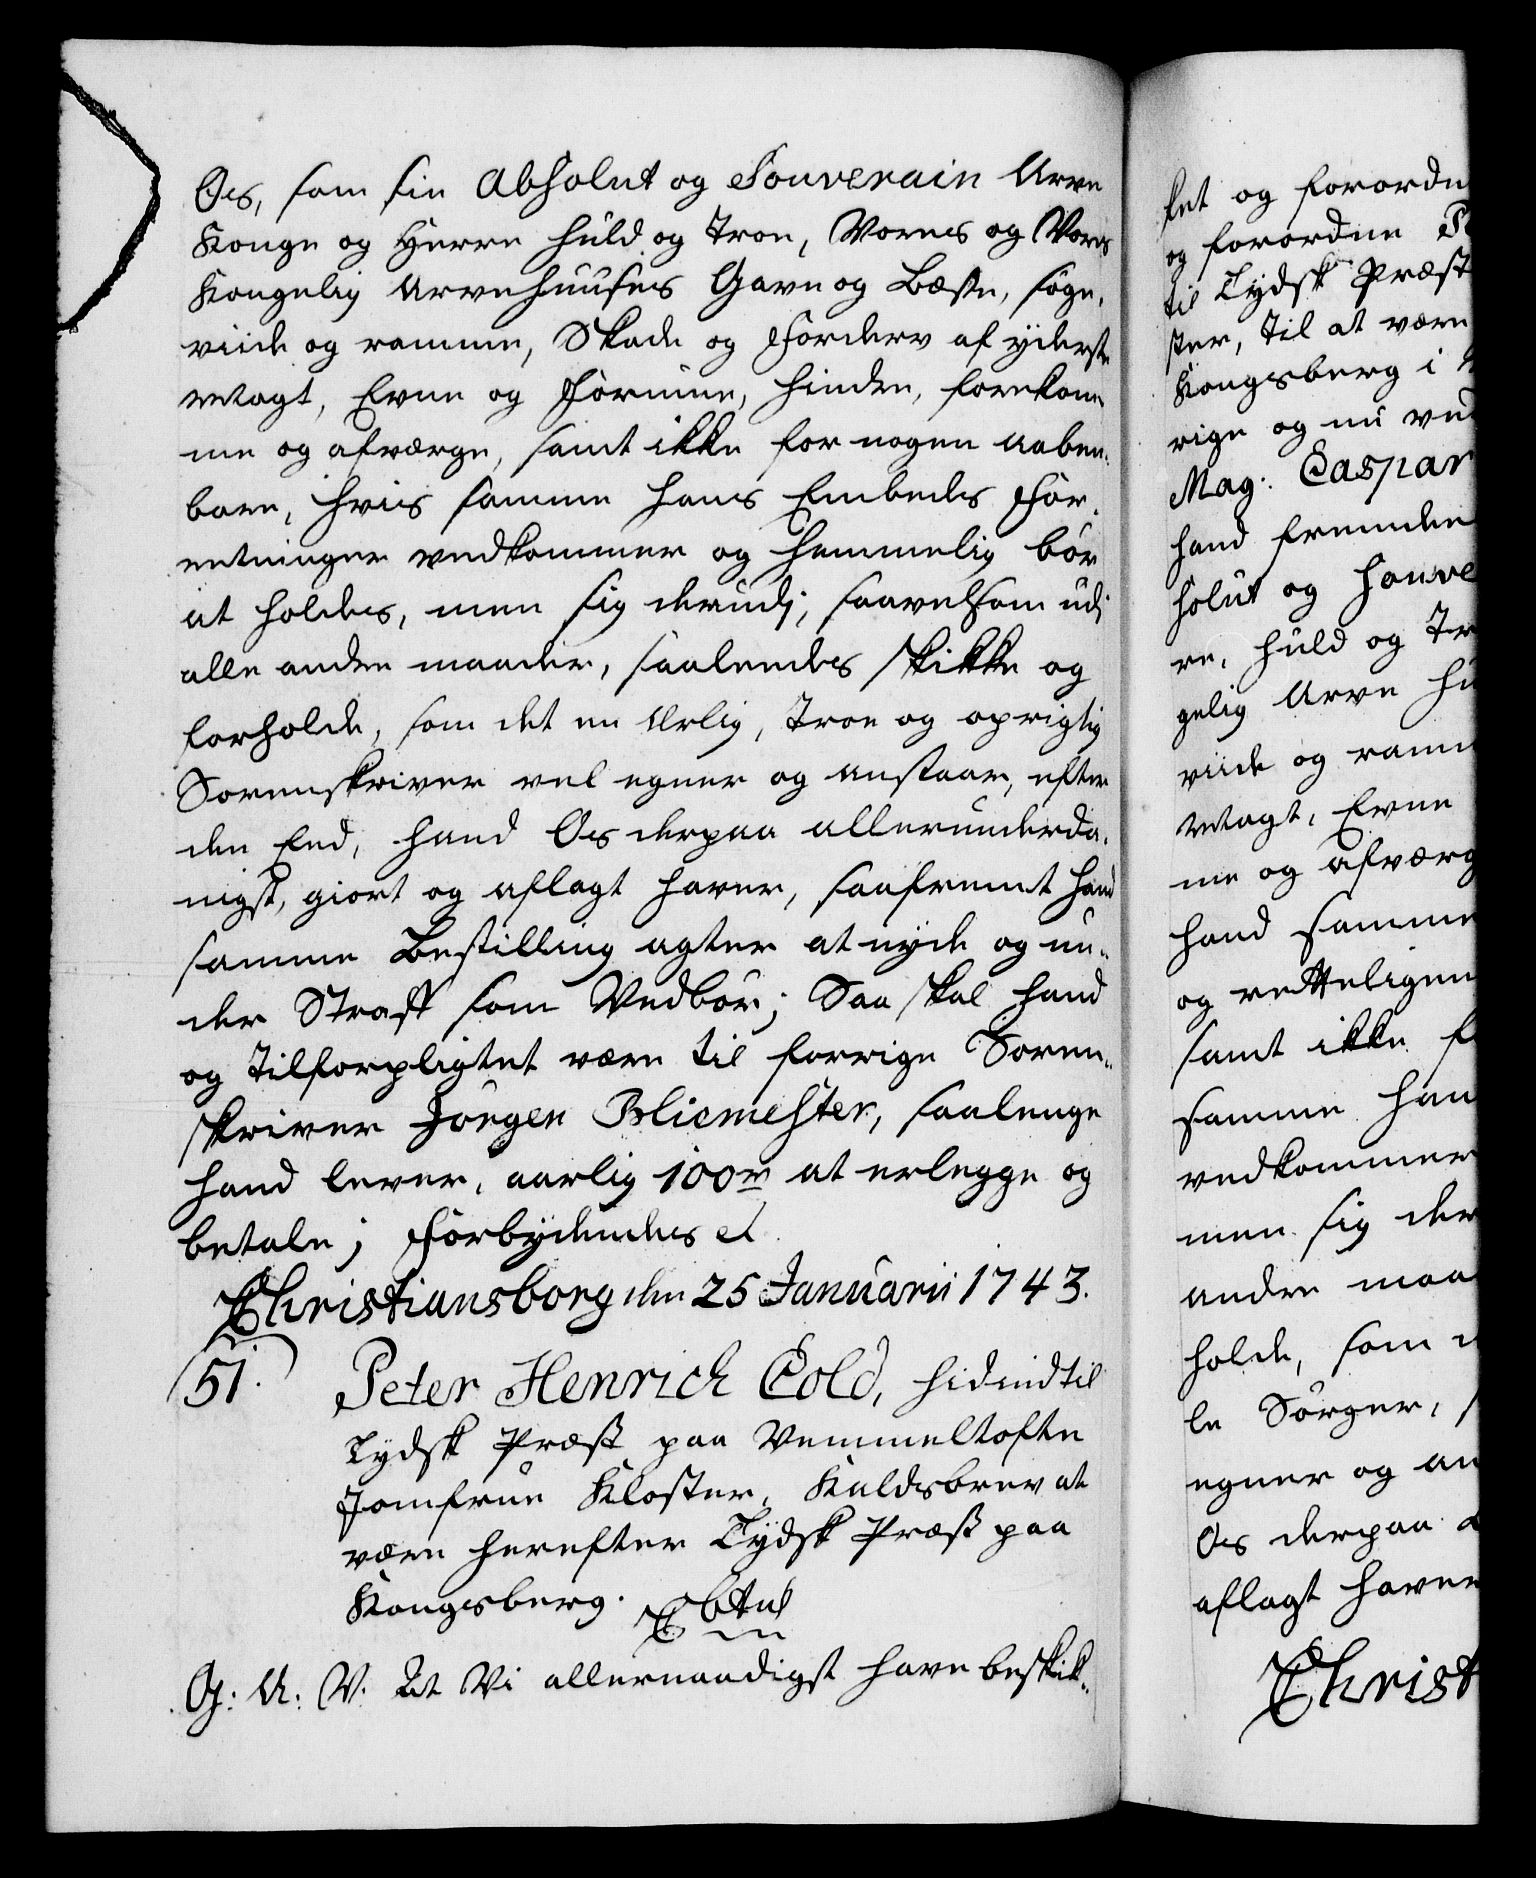 Os, som sin Absolut og Souverain Arve
Konge og Herre huld og Troe, Vores og Vores
Kongelig Arvehuuses Gavn og Bæste, søge,
viide og ramme, Skade og Forderv af yderste
Magt, Evne og Formue, hindre, forekom¬
me og afværge, samt ikke for nogen aaben¬
bare, hvis samme hans Embedes For¬
retninger vedkommer og hemmelig bør
at holdes, men sig derudj, saavelsom udj
alle andre maader, saaledes skikke og
forholde, som det en Ærlig, Troe og oprigtig
Sorenskriver vel egner og anstaar, efter
den Eed, hand Os derpaa allerunderda¬
nigst, giort og aflagt haver, saafremt hand
samme Bestilling agter at nyde og un¬
der Straff som Vedbør; Saa skal hand
og Tilforpligtet være til forrige Soren¬
skriver Jörgen Bliemester, saalenge
hand lever, aarlig 100 r at erlegge og
betale; Forbydendes et
Christiansborg den 25 Januarii 1743.
51. Peter Henrich Cold, hidindtil
Tydsk Præst paa Vemmeltofte
Jomfrue Kloster, Kaldsbrev at
være herefter Tydsk Præst paa
Kongsberg.
G: A: V. At Vi allernaadigst have beskik¬
ket og forordn
og forordne
til Tydsk Præst
ster, til at være
Kongsberg i
rige og nu ved
Mag: Caspar
hand fremden
solut og Souve
re, huld og Tr
gelig Arve Hu
viide og ramm
Magt, Evne
me og afværg
hand samme
og retteligen
samt ikke f
samme han
vedkommer
men sig der
andre maa
holde, som
le Sørger,
egner og an
Os derpaa
aflagt haver
Christ